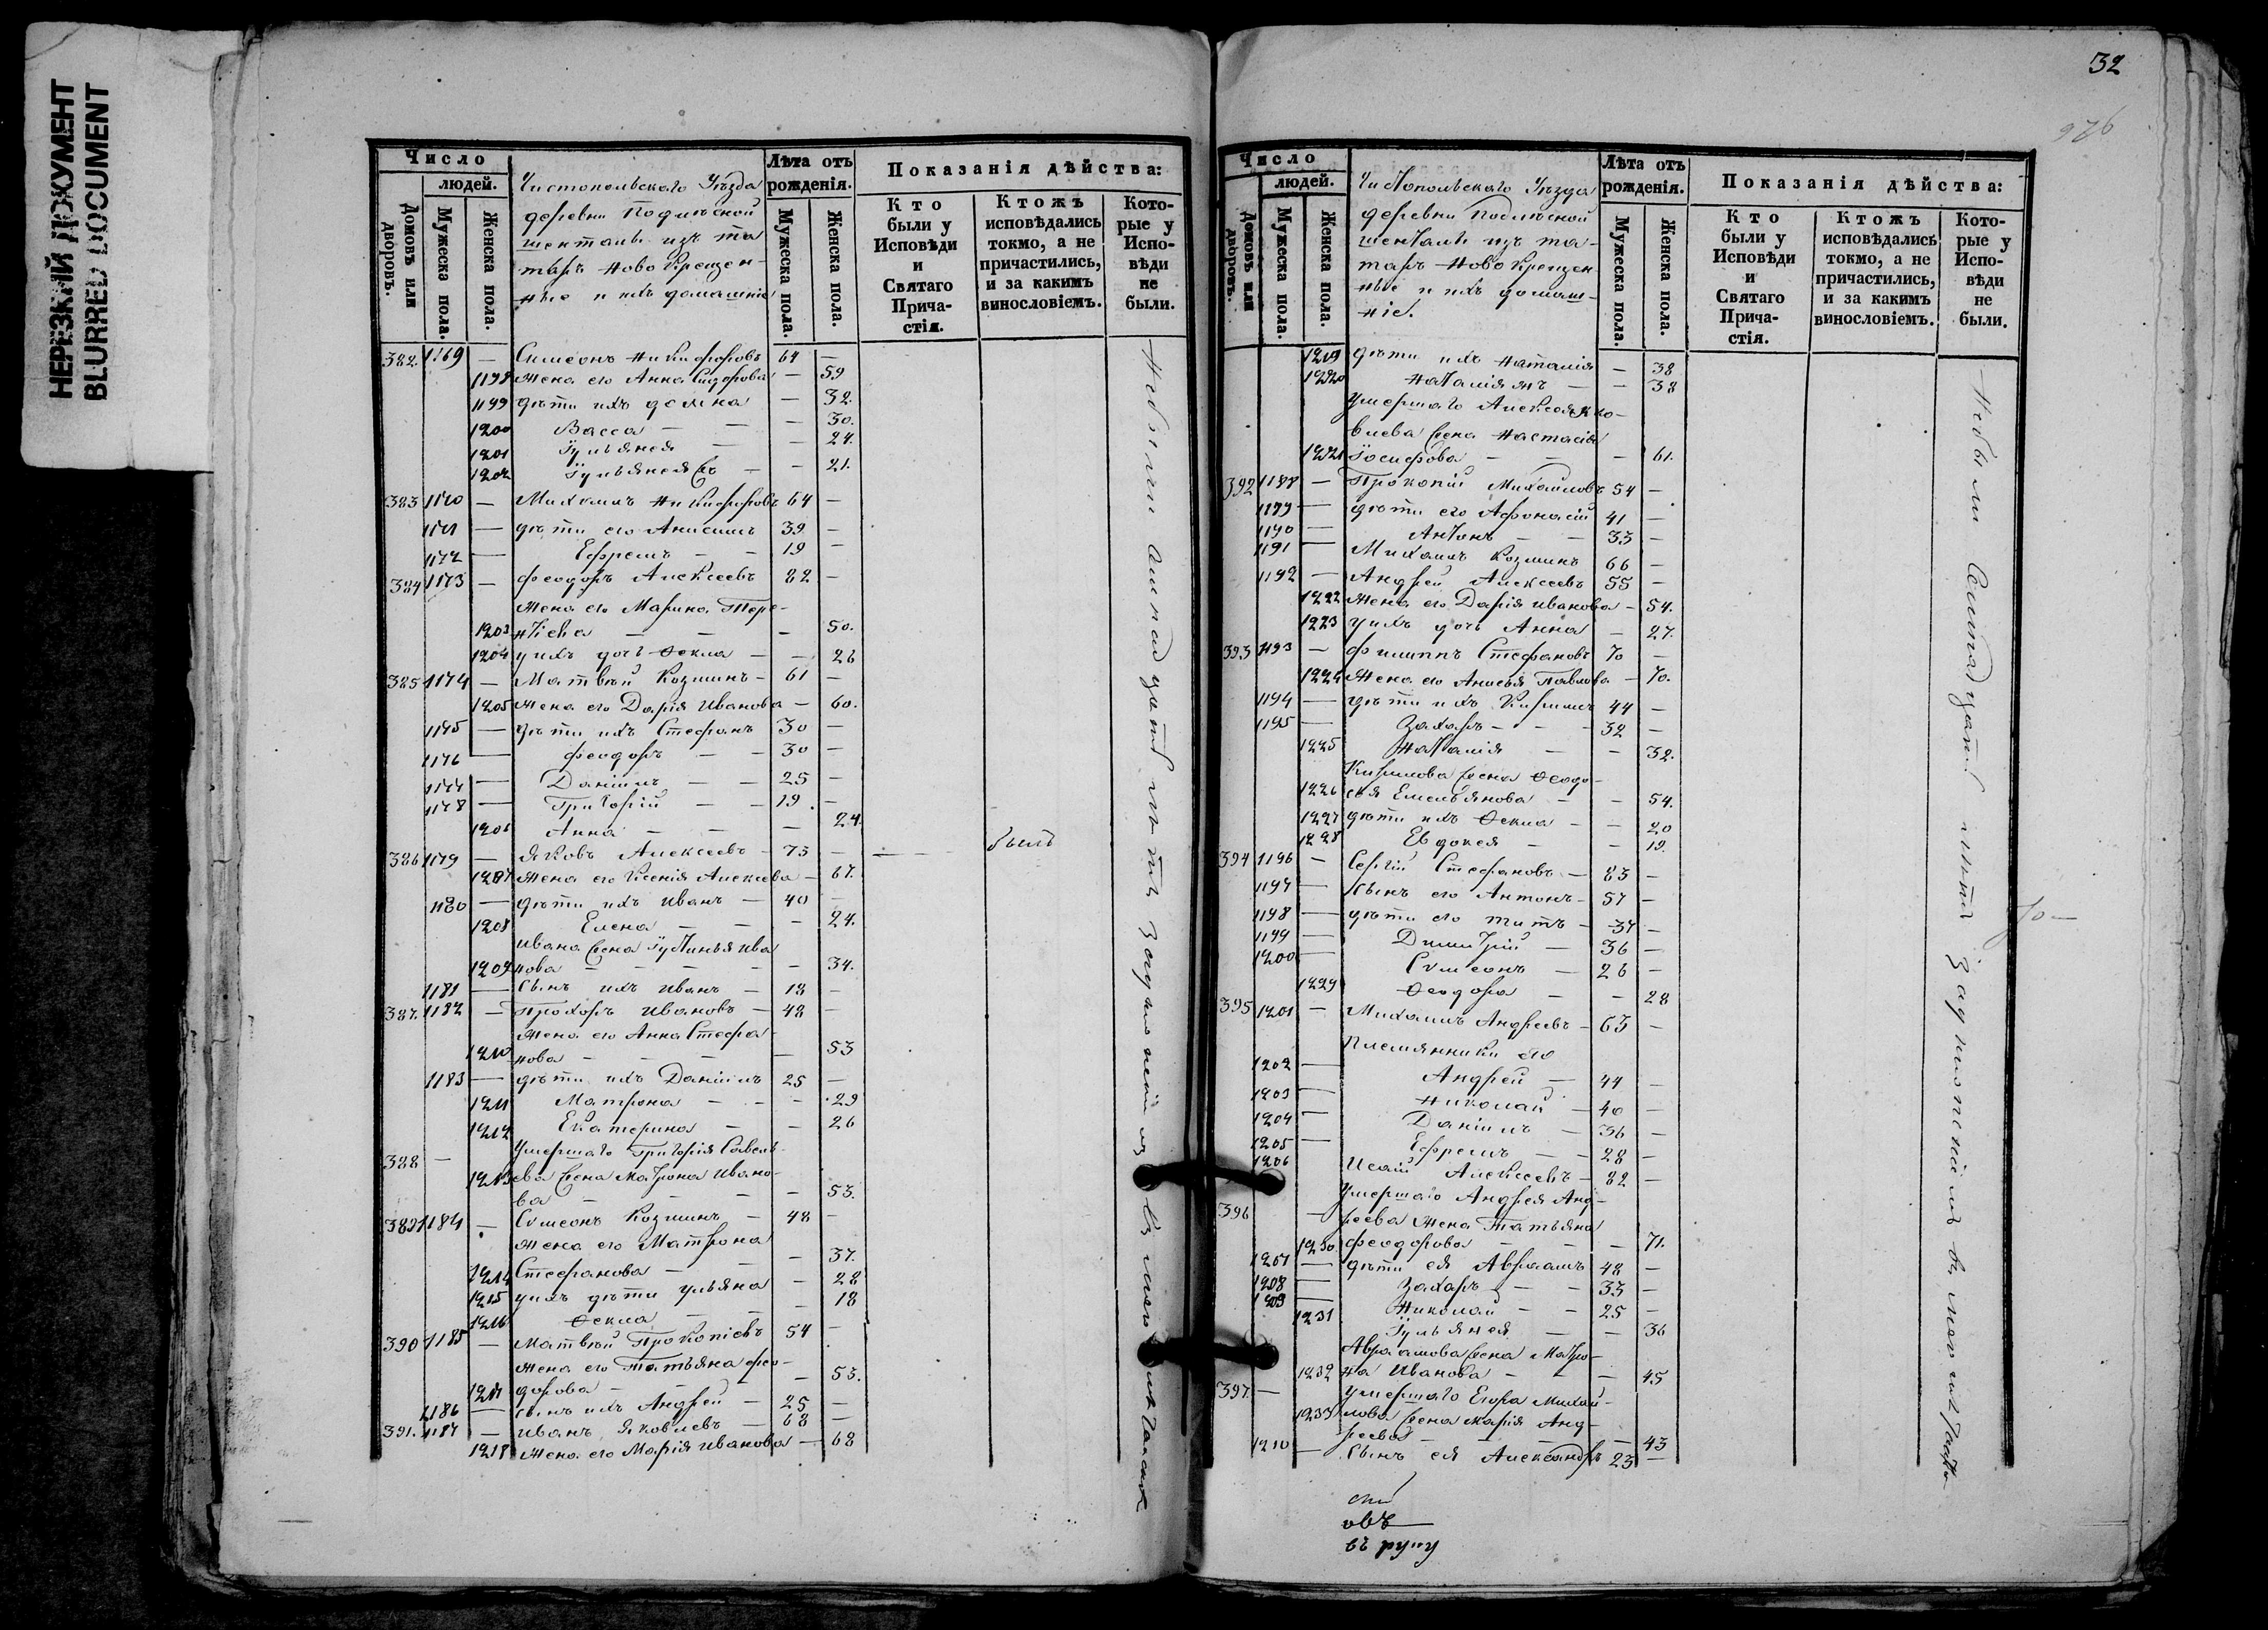 НЕРЕЗКИЙ ДОКУМЕНТ
BLURRED DOCUMENT
Число
людей.
Домовъ или дворовъ.
Мужеска пола.
Женска пола.
Чистопольскаго Уѣзда
деревни Подлѣсной
Шенталы изъ та
таръ Ново Крещен-
ные и ихъ домашніе
Лѣта отъ рожденія.
Мужеска пола.
Женска пола.
Показанія дѣйства:
Кто были у Исповѣди и Святаго Прича-стія.
Ктожъ исповѣдались токмо, а не причастились, и за какимъ винословіемъ.
Кото-рые у Испо-вѣди не были.
382. 1169 — Симеонъ Никифоровъ 64 —
1198 жена его Анна Сидорова — 59
1199 дѣти ихъ Домна — 32.
1200 Васса — — — 30.
1201 Іульянея — — 24.
1202 Іульянея — — 21.
383 1170 — Михаилъ Никифоровъ 64 —
1171 — дѣти его Анисимъ 39 —
1172 — Ефремъ — — 19 —
384 1173 — Феодоръ Алексеевъ 82 —
жена его Марина Тере-
1203 нтіева — — — 50.
1204 у ихъ дочь Ѳекла — — 26
385 1174 — Матвѣй Козминъ — 61 —
1205 жена его Дарія Иванова — 60.
1175 — дѣти ихъ Стефанъ 30 —
1176 — Феодоръ — — 30 —
1177 — Даніилъ — — 25 —
1178 — Григорій — — 19. —
1206 Анна — — — 24.
386 1179 — Яковъ Алексеевъ — 75 — былъ
1207 жена его Ксенія Алексеева — 67.
1180 — дѣти ихъ Иванъ — 40 —
1208 Елена — — — 24.
Ивана жена Іустинья Ива
1209 нова — — — — 34.
1181 — сынъ ихъ Иванъ — 18 —
387. 1182 — Прохоръ Ивановъ — 48 —
жена его Анна Стефа-
1210 нова — — — — 53
1183 — дѣти ихъ Даніилъ 25 —
1211 Матрона — — — 29
1212 Екатерина — — 26
388 — Умершаго Григорія Савель-
1213 ева жена Матрона Ивано-
ва — — — — 53.
389 1184 — Симеонъ Козминъ — 48 —
жена его Матрона
1214 Стефанова — — — 37.
1215 у ихъ дѣти Ульяна — 28
1216 Ѳекла — — — 18
390 1185 — Матвѣй Прокопіевъ 54 —
жена его Татьяна Фео-
1217 дорова — — — — 53.
1186 — сынъ ихъ Андрей — 25 —
391. 1187 — Иванъ Яковлевъ — 68 —
1218 жена его Марія Иванова — 68
32
976
Число
людей.
Домовъ или дворовъ.
Мужеска пола.
Женска пола.
Чистопольскаго Уѣзда
деревни Подлѣсной
Шенталы изъ та-
таръ Ново Крещен-
ные и ихъ домаш-
ніе.
Лѣта отъ рожденія.
Мужеска пола.
Женска пола.
Показанія дѣйства:
Кто были у Исповѣди и Святаго Прича-стія.
Ктожъ исповѣдались токмо, а не причастились, и за какимъ винословіемъ.
Кото-рые у Испо-вѣди не были.
1219 дѣти ихъ Наталія — 38
1220 Наталія — — 38
Умершаго Алексея Яко-
влева жена Настасія
1221 Іосифова — — — 61.
392 1188 — Прокопій Михайловъ 54 —
1189 — дѣти его Афонасій 41 —
1190 — Антонъ — — 33 —
1191 Михаилъ Козминъ 66 —
1192 — Андрей Алексеевъ 55 —
1222 жена его Дарія Иванова — 54.
1223 у ихъ дочь Анна — 27.
393 1193 — Филиппъ Стефановъ 70 —
1224 жена его Анисья Павлова — 70.
1194 — дѣти ихъ Кирилъ 44 —
1195 — Захаръ — — 32 —
1225 Наталія — — 32.
Кирилова жена Ѳеодо-
1226 сія Емельянова — — 54.
1227 дѣти ихъ Ѳекла — — 20
1228 Евдокея — — 19.
394 1196 — Сергій Стефановъ — 83 —
1197 — сынъ его Антонъ — 57 —
1198 — дѣти его Титъ — 37 —
1199 — Димитрій — 36 —
1200 — Симеонъ — 26 —
1229 Ѳеодора — — 28
395 1201 — Михаилъ Андреевъ — 63 —
Племянники его
1202 — Андрей — 44 —
1203 — Николай — 40 —
1204 — Даніилъ — 36 —
1205 — Ефремъ — — 28 —
1206 Исай Алексеевъ — 82 —
396 — Умершаго Андрея Анд-
реева жена Татьяна
1230 Феодорова — — — 71.
1207 — дѣти ея Авраамъ 48 —
1208 — Захаръ — — 33 —
1209 Николай — — 25 —
1231 Іульянея — — 36
Авраамова жена Матро-
1232 на Иванова — — — 45
397. — Умершаго Егора Михай-
1233 лова жена Марія Анд-
реева — — — — 43
1210 — сынъ ея Александръ 23 —
Небыли Семнадцать лѣтъ за уклоненіемъ въ магометанство
овъ
въ руку